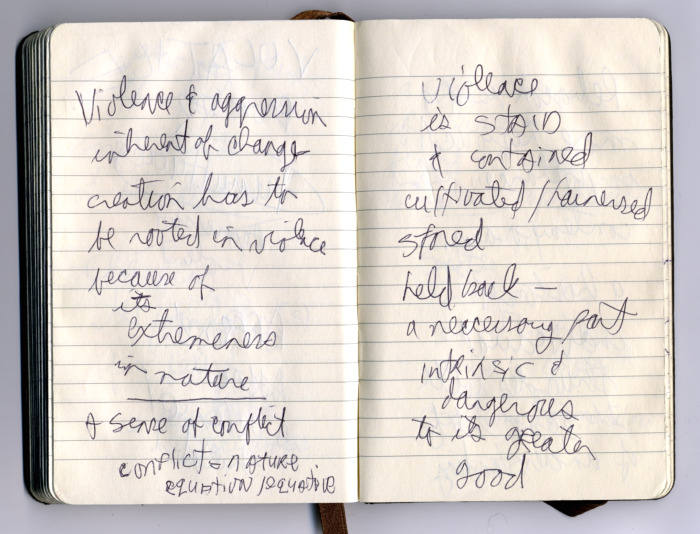 Violence & aggression
inherent of change
creation has to
be rooted in violence
because of
its
extremeness
in nature
A sense of conflict
conflict = nature
equation / equative
violence
is STAID
& contained
cultivated / harnessed
stored
held back —
a neccessary part
intrinsic &
dangerous
to its greater
good